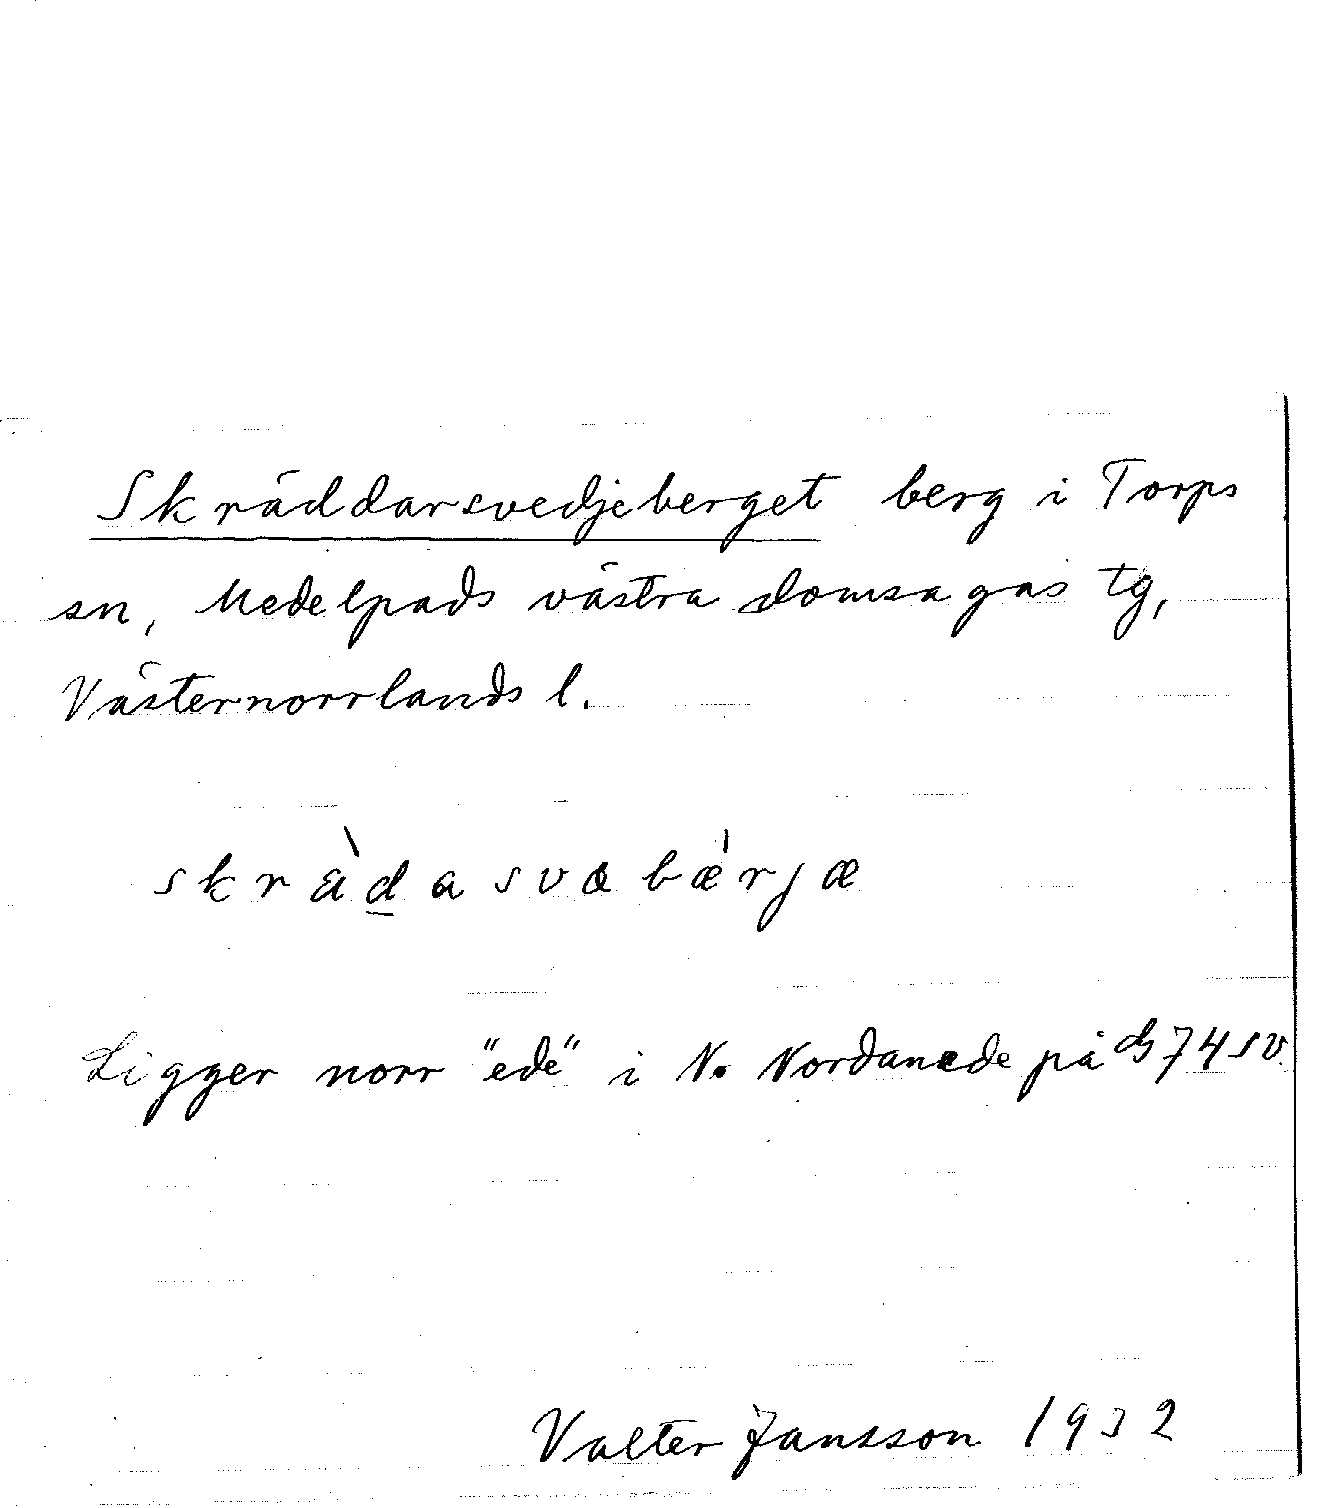 Skräddarsvedjeberget berg i Torps
sn, Medelpads västra domsagas tg,
Västernorrlands l.
skrädasvæbærjæ
Ligger norr "ede" i N. Nordanede på G74SV.
Valter Jansson 1932